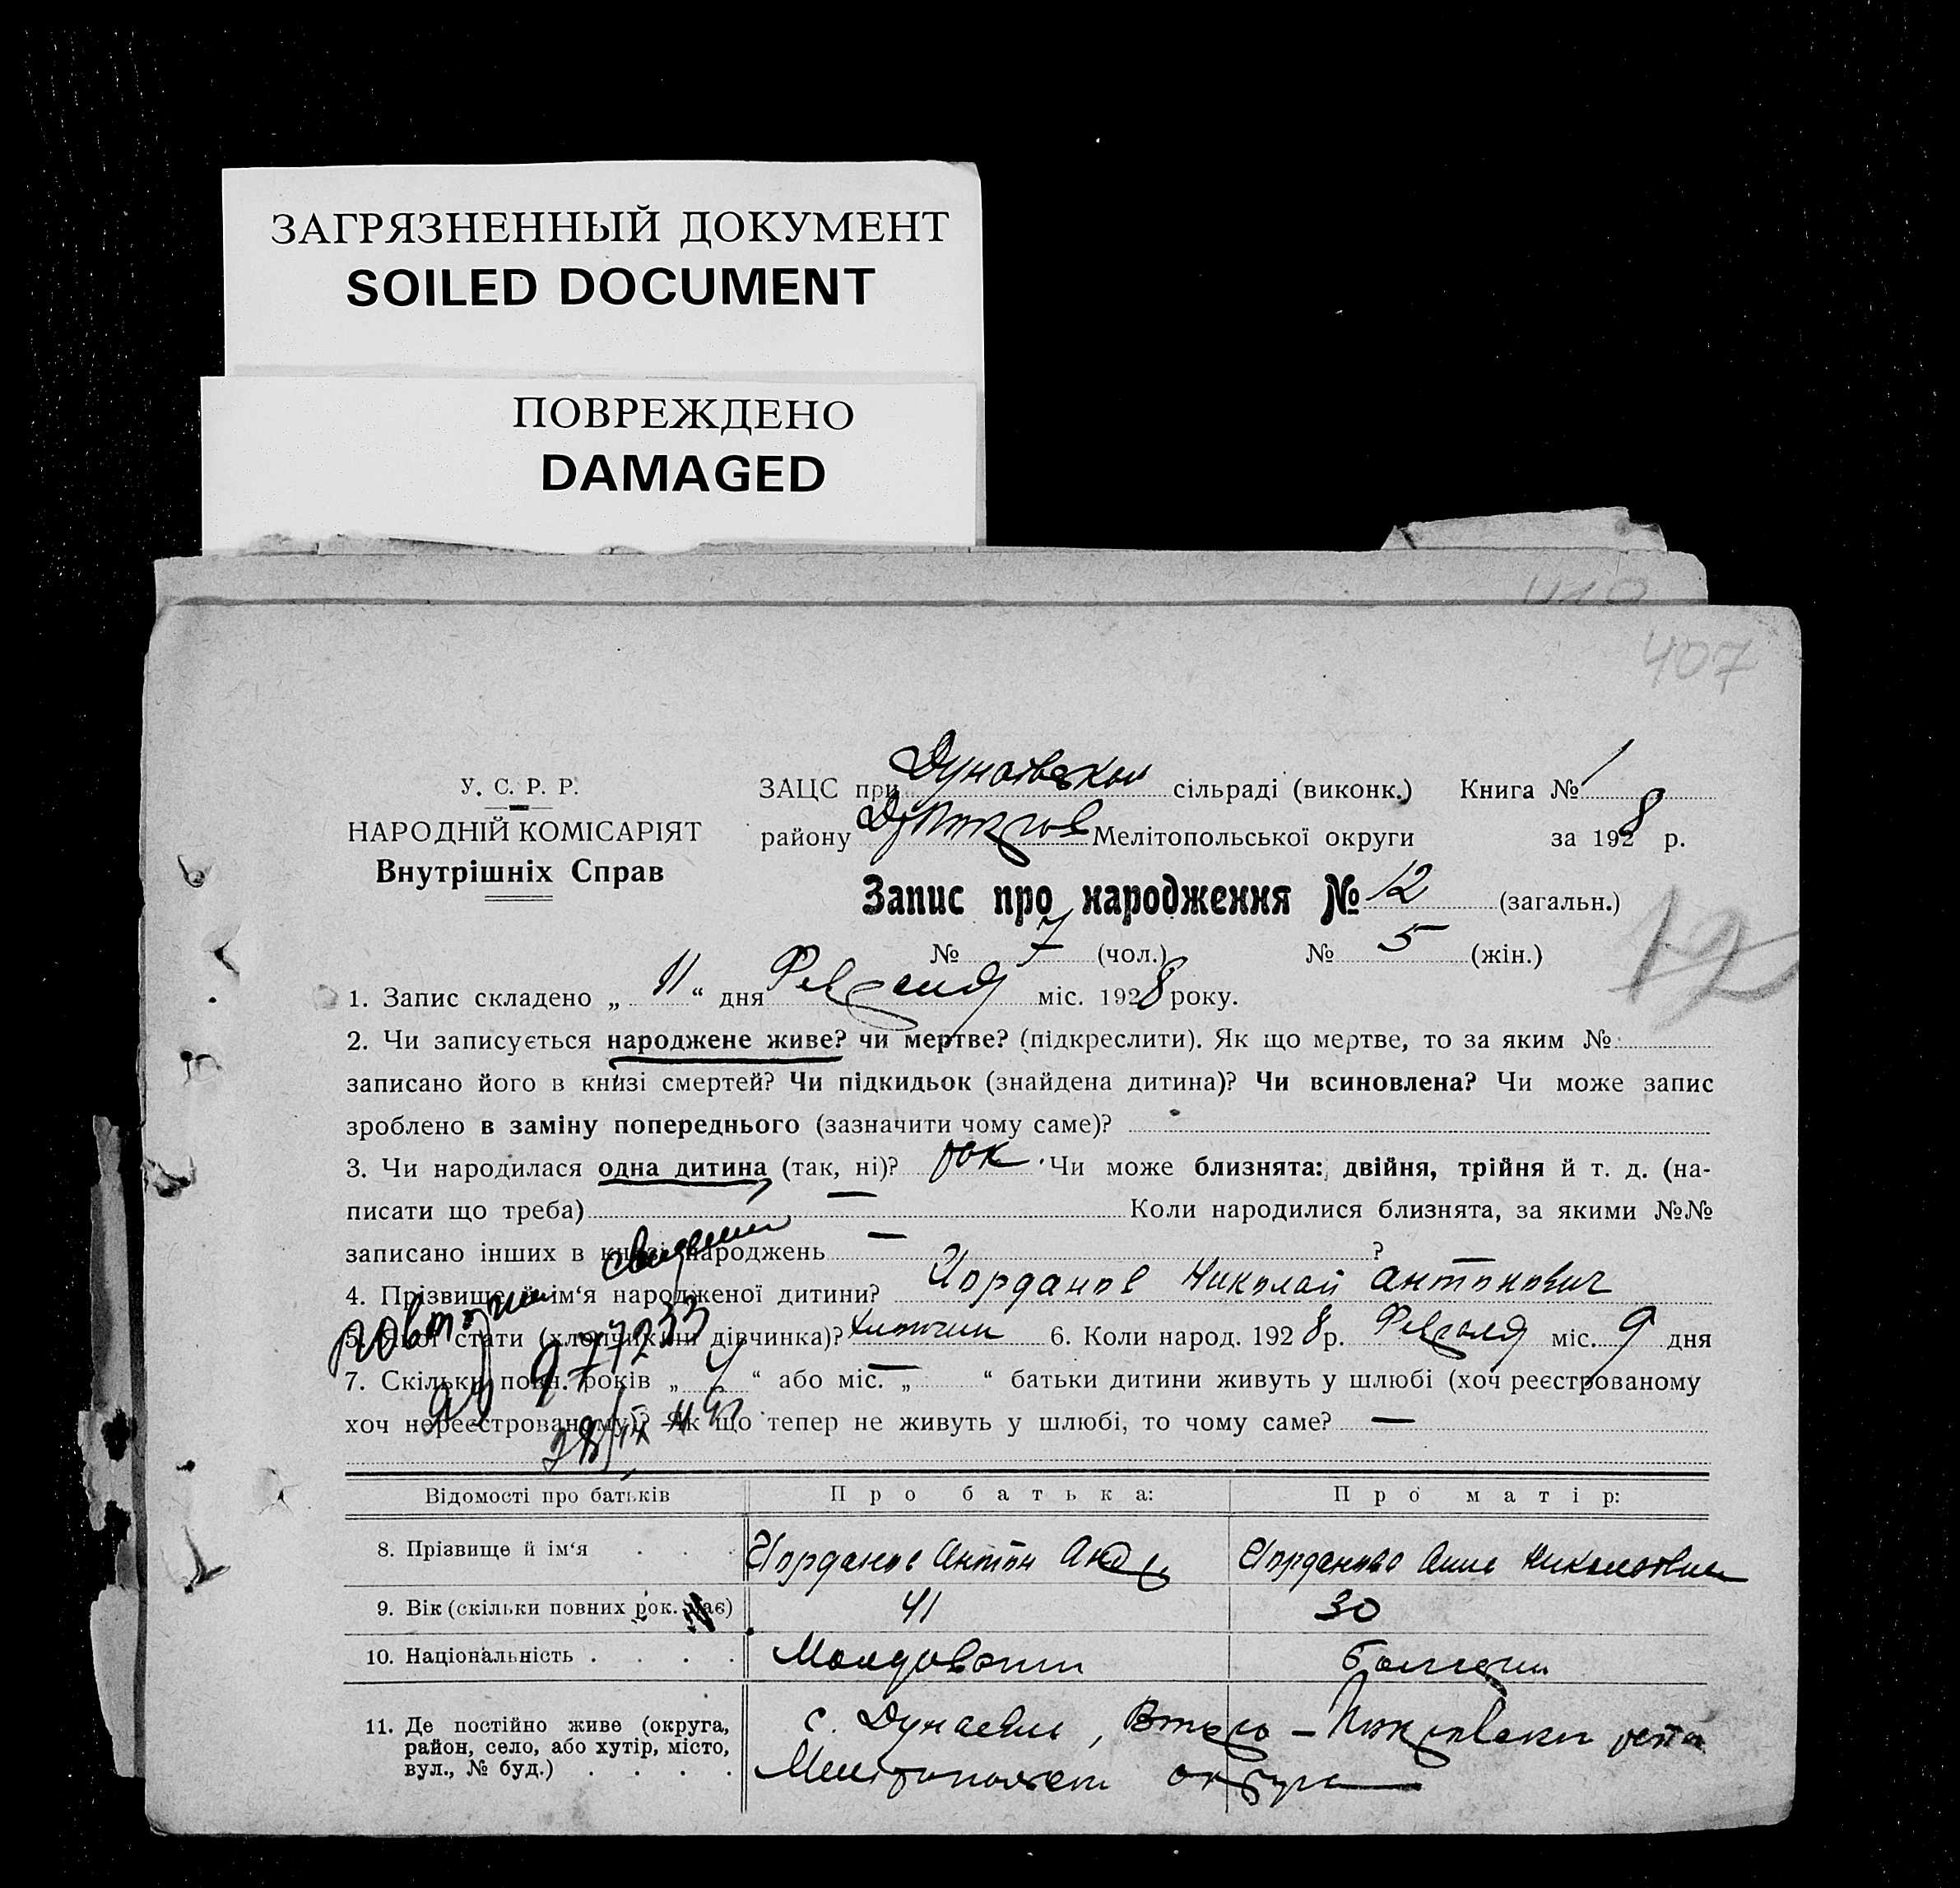 ЗАГРЯЗНЕННЫЙ ДОКУМЕНТ
SOILED DOCUMENT
ПОВРЕЖДЕНО
DAMAGED
407
У. С. Р. Р.
НАРОДНІЙ КОМІСАРІЯТ
Внутрішніх Справ
ЗАЦС при сільраді (виконк.) Книга № 1
району Мелітопольської округи за 1928 р.
Запис про народження № 12 (загальн.)
12
№ 7 (чол.) № 5 (жін.)
1. Запис складено „ 11 “ дня Февраля міс. 1928 року.
2. Чи записується народжене живе? чи мертве? (підкреслити). Як що мертве, то за яким №
записано його в книзі смертей? Чи підкидьок (знайдена дитина)? Чи всиновлена? Чи може запис
зроблено в заміну попереднього (зазначити чому саме)?
3. Чи народилася одна дитина (так, ні)? Чи може близнята: двійня, трійня й т. д. (на-
писати що треба) — Коли народилися близнята, за якими №№
записано інших в книзі народжень — ?
4. Прізвище й ім‘я народженої дитини? Иорданов Николай Антонович
5. Якої стати (хлопчик чи дівчинка)? хлопчик 6. Коли народ. 1928 р. Февраля міс. 9 дня
7. Скільки повн. років „ “ або міс. „ — “ батьки дитини живуть у шлюбі (хоч реєстрованому
хоч нереєстрованому)? Як що тепер не живуть у шлюбі, то чому саме? —
Відомості про батьків Про батька: Про матір:
8. Прізвище й ім‘я Иорданов Антон Иорданова Анна Николаевна
9. Вік (скільки повних рок. має) 41 30
10. Національність Молдован
11. Де постійно живе (округа, с. Дунаевка,
район, село, або хутір, місто,
вул., № буд.)